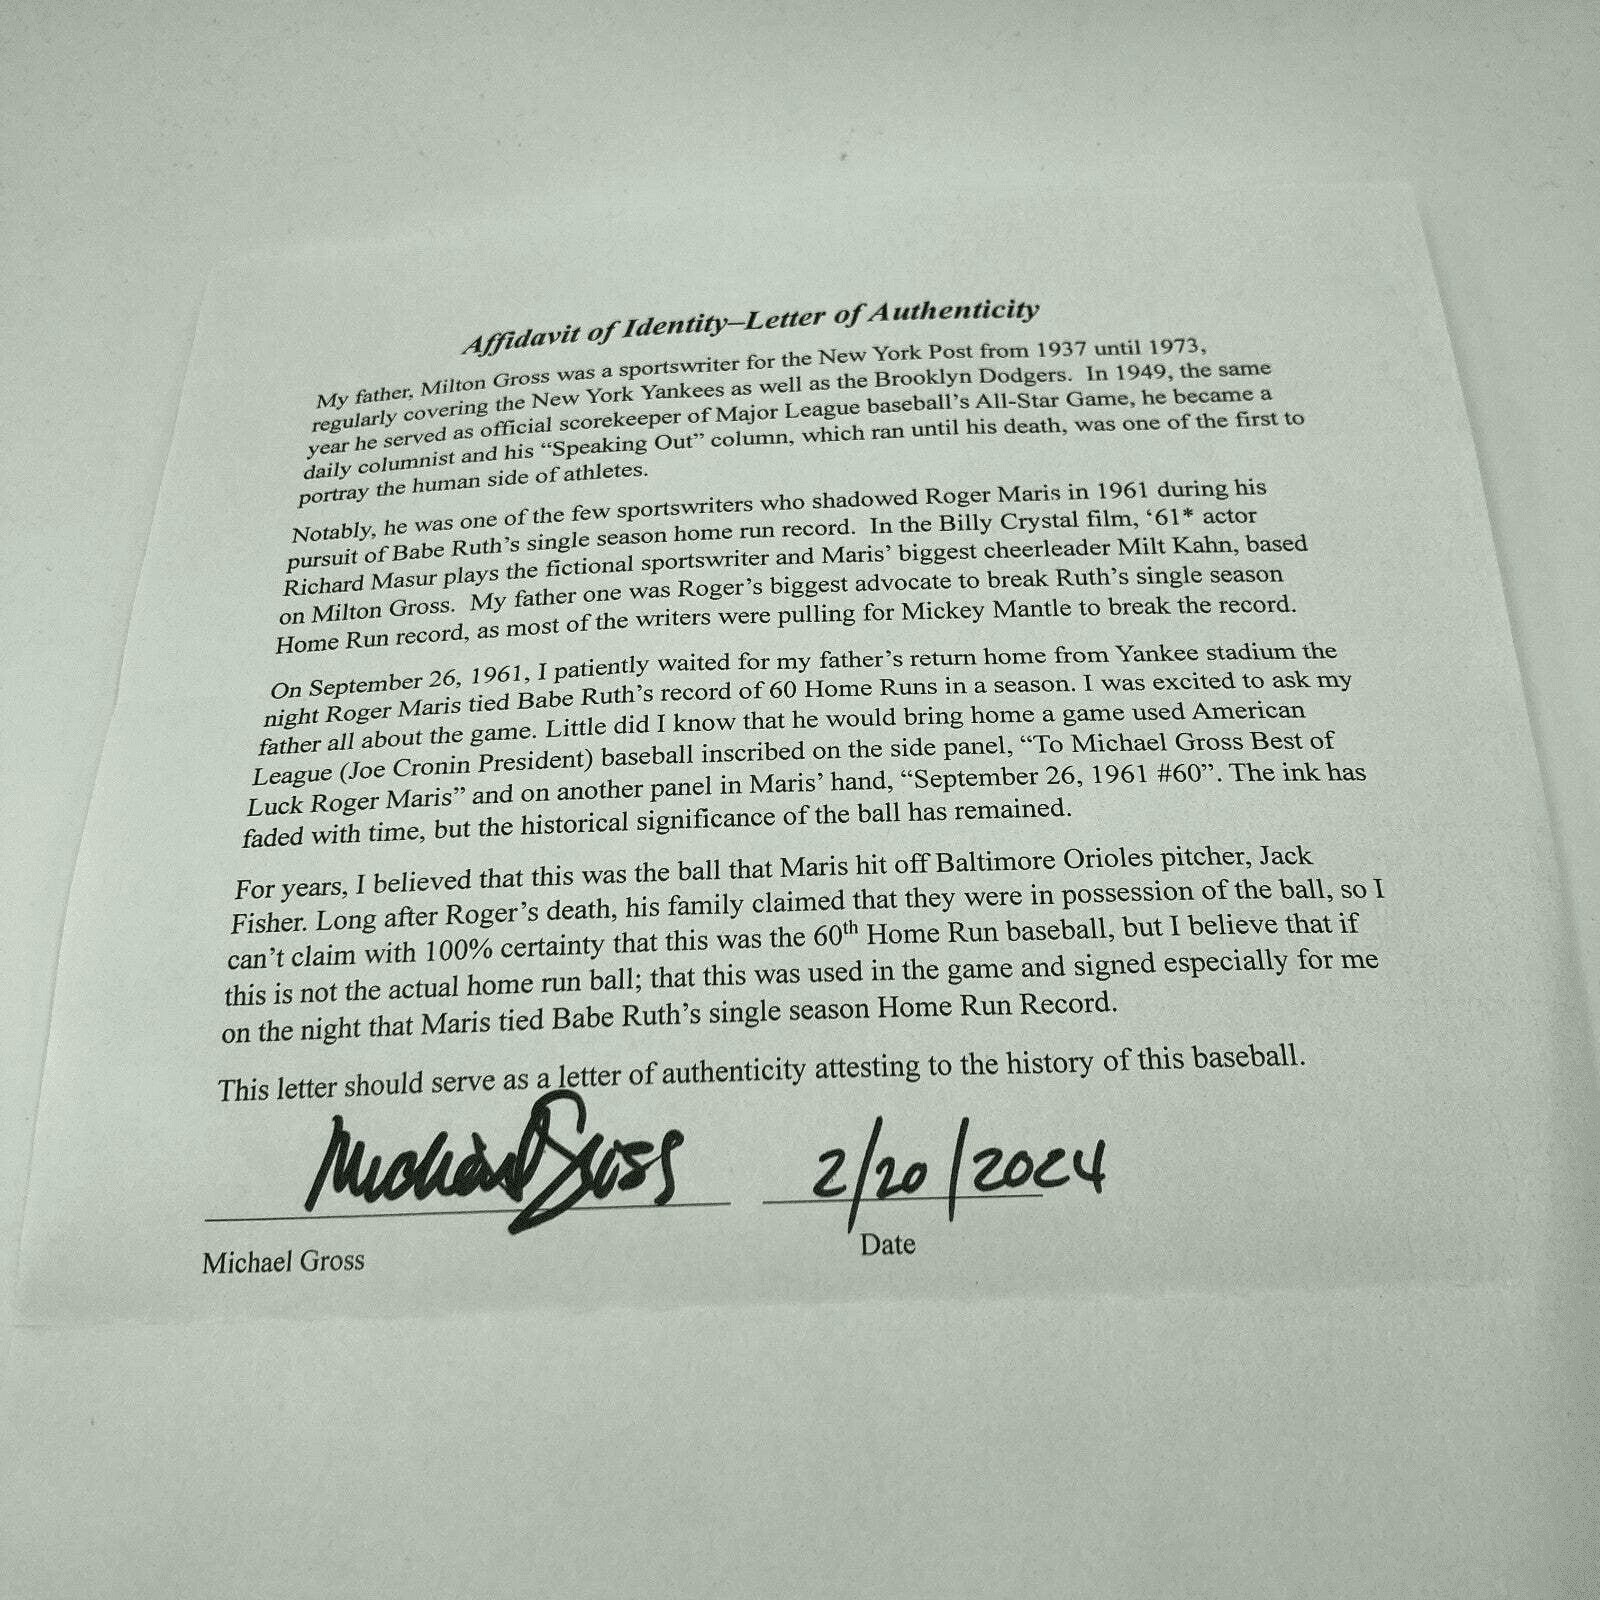 Affidavit of Identity–Letter of Authenticity
My father, Milton Gross was a sportswriter for the New York Post from 1937 until 1973,
regularly covering the New York Yankees as well as the Brooklyn Dodgers. In 1949, the same
year he served as official scorekeeper of Major League baseball's All-Star Game, he became a
daily columnist and his “Speaking Out” column, which ran until his death, was one of the first to
portray the human side of athletes.
Notably, he was one of the few sportswriters who shadowed Roger Maris in 1961 during his
pursuit of Babe Ruth’s single season home run record. In the Billy Crystal film, ‘61* actor
Richard Masur plays the fictional sportswriter and Maris’ biggest cheerleader Milt Kahn, based
on Milton Gross. My father one was Roger’s biggest advocate to break Ruth’s single season
Home Run record, as most of the writers were pulling for Mickey Mantle to break the record.
On September 26, 1961, I patiently waited for my father’s return home from Yankee stadium the
night Roger Maris tied Babe Ruth’s record of 60 Home Runs in a season. I was excited to ask my
father all about the game. Little did I know that he would bring home a game used American
League (Joe Cronin President) baseball inscribed on the side panel, “To Michael Gross Best of
Luck Roger Maris” and on another panel in Maris’ hand, “September 26, 1961 #60”. The ink has
faded with time, but the historical significance of the ball has remained.
For years, I believed that this was the ball that Maris hit off Baltimore Orioles pitcher, Jack
Fisher. Long after Roger’s death, his family claimed that they were in possession of the ball, so I
can’t claim with 100% certainty that this was the 60th Home Run baseball, but I believe that if
this is not the actual home run ball; that this was used in the game and signed especially for me
on the night that Maris tied Babe Ruth’s single season Home Run Record.
This letter should serve as a letter of authenticity attesting to the history of this baseball.
Michael Gross 2/20/2024
Michael Gross Date